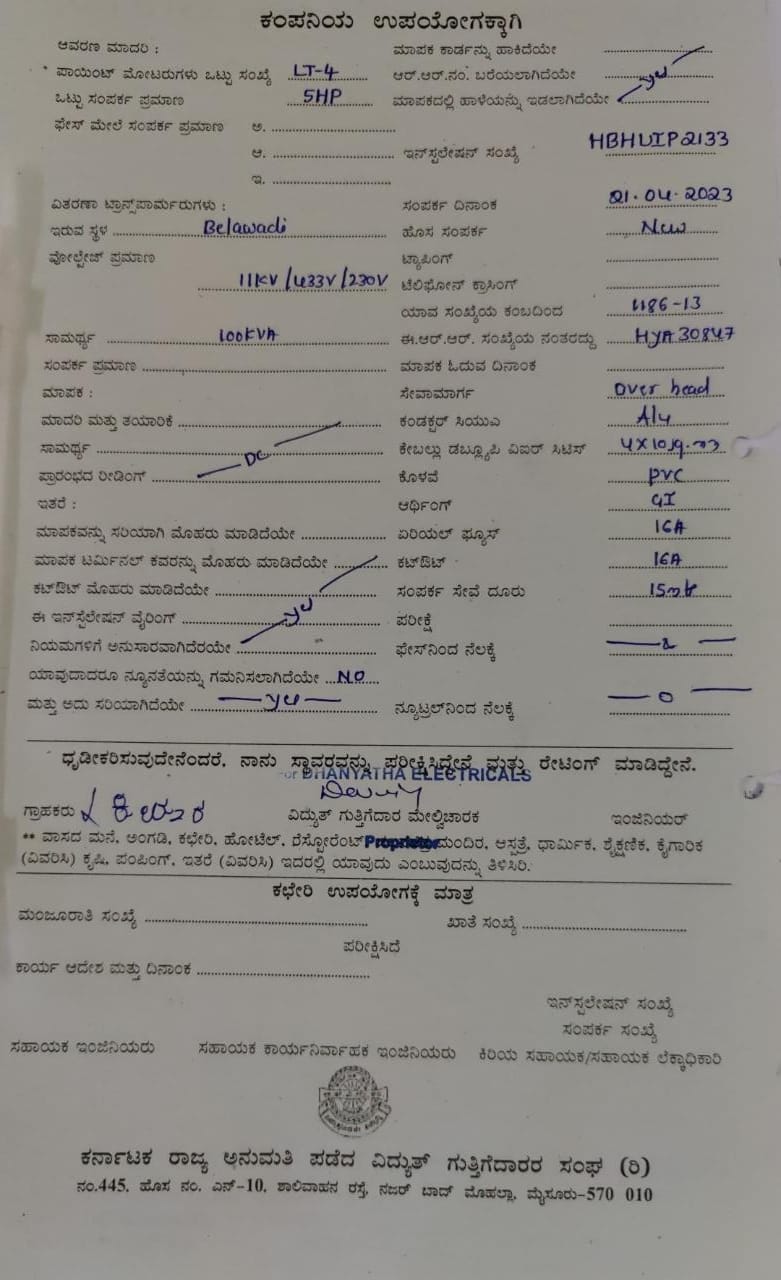 ಕಂಪನಿಯ ಉಪಯೋಗಕ್ಕಾಗಿ
ಆವರಣ ಮಾದರಿ : ಮಾಪಕ ಕಾರ್ಡನ್ನು ಹಾಕಿದೆಯೇ
ಪಾಯಿಂಟ್ ಮೋಟರುಗಳು ಒಟ್ಟು ಸಂಖ್ಯೆ LT-4 ಆರ್.ಆರ್.ನಂ. ಬರೆಯಲಾಗಿದೆಯೇ
ಒಟ್ಟು ಸಂಪರ್ಕ ಪ್ರಮಾಣ 5HP ಮಾಪಕದಲ್ಲಿ ಹಾಳೆಯನ್ನು ಇಡಲಾಗಿದೆಯೇ
ಫೇಸ್ ಮೇಲೆ ಸಂಪರ್ಕ ಪ್ರಮಾಣ ಅ.
ಆ. ಇನ್‌ಸ್ಟಲೇಷನ್ ಸಂಖ್ಯೆ HBHUIP2133
ಇ.
ವಿತರಣಾ ಟ್ರಾನ್ಸ್‌ಪಾರ್ಮರುಗಳು : ಸಂಪರ್ಕ ದಿನಾಂಕ 21.04.2023
ಇರುವ ಸ್ಥಳ Belawadi ಹೊಸ ಸಂಪರ್ಕ New
ವೋಲ್ಟೇಜ್ ಪ್ರಮಾಣ ಟ್ಯಾಪಿಂಗ್
11KV/433V/230V ಟೆಲಿಫೋನ್ ಕ್ರಾಸಿಂಗ್
ಯಾವ ಸಂಖ್ಯೆಯ ಕಂಬದಿಂದ 1186-13
ಸಾಮರ್ಥ್ಯ 100KVA ಈ.ಆರ್.ಆರ್. ಸಂಖ್ಯೆಯ ನಂತರದ್ದು HYA30847
ಸಂಪರ್ಕ ಪ್ರಮಾಣ ಮಾಪಕ ಓದುವ ದಿನಾಂಕ
ಮಾಪಕ : ಸೇವಾಮಾರ್ಗ over head
ಮಾದರಿ ಮತ್ತು ತಯಾರಿಕೆ ಕಂಡಕ್ಟರ್ ಸಿಯುಎ Aly
ಸಾಮರ್ಥ್ಯ DC ಕೇಬಲ್ಲು ಡಬ್ಲ್ಯೂಪಿ ವಿಐರ್ ಸಿಟಿಸ್ 4X10
ಪ್ರಾರಂಭದ ರೀಡಿಂಗ್ ಕೊಳವೆ PVC
ಇತರೆ : ಆರ್ಥಿಂಗ್ GI
ಮಾಪಕವನ್ನು ಸರಿಯಾಗಿ ಮೊಹರು ಮಾಡಿದೆಯೇ ಏರಿಯಲ್ ಫ್ಯೂಸ್ 16A
ಮಾಪಕ ಟರ್ಮಿನಲ್ ಕವರನ್ನು ಮೊಹರು ಮಾಡಿದೆಯೇ ಕಟ್‌ಔಟ್ 16A
ಕಟ್‌ಔಟ್ ಮೊಹರು ಮಾಡಿದೆಯೇ ಸಂಪರ್ಕ ಸೇವೆ ದೂರು
ಈ ಇನ್‌ಸ್ಟೆಲೇಷನ್ ವೈರಿಂಗ್ ಪರೀಕ್ಷೆ
ನಿಯಮಗಳಿಗೆ ಅನುಸಾರವಾಗಿದೆರಯೇ ಫೇಸ್‌ನಿಂದ ನೆಲಕ್ಕೆ
ಯಾವುದಾದರೂ ನ್ಯೂನತೆಯನ್ನು ಗಮನಿಸಲಾಗಿದೆಯೇ NO
ಮತ್ತು ಅದು ಸರಿಯಾಗಿದೆಯೇ ನ್ಯೂಟ್ರಲ್‌ನಿಂದ ನೆಲಕ್ಕೆ 0
ಧೃಡೀಕರಿಸುವುದೇನೆಂದರೆ, ನಾನು ಸ್ಥಾವರವನ್ನು ಪರೀಕ್ಷಿಸಿದ್ದೇನೆ ಮತ್ತು ರೇಟಿಂಗ್ ಮಾಡಿದ್ದೇನೆ.
For DHANYATHA ELECTRICALS
ಗ್ರಾಹಕರು ವಿದ್ಯುತ್ ಗುತ್ತಿಗೆದಾರ ಮೇಲ್ವಿಚಾರಕ ಇಂಜಿನಿಯರ್
** ವಾಸದ ಮನೆ, ಅಂಗಡಿ, ಕಛೇರಿ, ಹೋಟೆಲ್, ರೆಸ್ಟೋರೆಂಟ್ Proprietor ಮಂದಿರ, ಆಸ್ಪತ್ರೆ, ಧಾರ್ಮಿಕ, ಶೈಕ್ಷಣಿಕ, ಕೈಗಾರಿಕ
(ವಿವರಿಸಿ) ಕೃಷಿ, ಪಂಪಿಂಗ್, ಇತರೆ (ವಿವರಿಸಿ) ಇದರಲ್ಲಿ ಯಾವುದು ಎಂಬುವುದನ್ನು ತಿಳಿಸಿರಿ.
ಕಛೇರಿ ಉಪಯೋಗಕ್ಕೆ ಮಾತ್ರ
ಮಂಜೂರಾತಿ ಸಂಖ್ಯೆ ಖಾತೆ ಸಂಖ್ಯೆ
ಪರೀಕ್ಷಿಸಿದೆ
ಕಾರ್ಯ ಆದೇಶ ಮತ್ತು ದಿನಾಂಕ
ಇನ್‌ಸ್ಟಲೇಷನ್ ಸಂಖ್ಯೆ
ಸಂಪರ್ಕ ಸಂಖ್ಯೆ
ಸಹಾಯಕ ಇಂಜಿನಿಯರು ಸಹಾಯಕ ಕಾರ್ಯನಿರ್ವಾಹಕ ಇಂಜಿನಿಯರು ಕಿರಿಯ ಸಹಾಯಕ/ಸಹಾಯಕ ಲೆಕ್ಕಾಧಿಕಾರಿ
ಕರ್ನಾಟಕ ರಾಜ್ಯ ಅನುಮತಿ ಪಡೆದ ವಿದ್ಯುತ್ ಗುತ್ತಿಗೆದಾರರ ಸಂಘ (ರಿ)
ನಂ.445, ಹೊಸ ನಂ. ಎನ್-10, ಶಾಲಿವಾಹನ ರಸ್ತೆ, ನಜರ್ ಬಾದ್ ಮೊಹಲ್ಲಾ, ಮೈಸೂರು-570 010